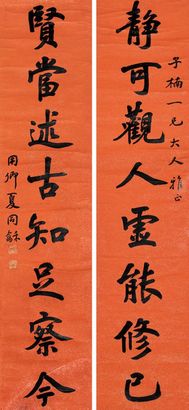 子楠一兄大人雅正
静可觀人靈能修己
賢當述古知足察今
用卿夏同龢